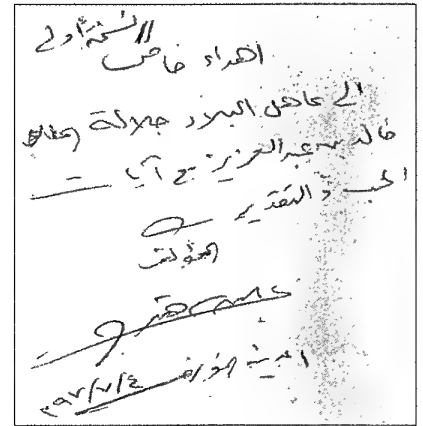 النسخة الأولى
اهداء خاص
الى عاهل البلاد جلالة الملك
خالد بن عبدالعزيز مع آيات
الحب والتقدير
المؤلف
المدينة المنورة ٩٧/٧/٤